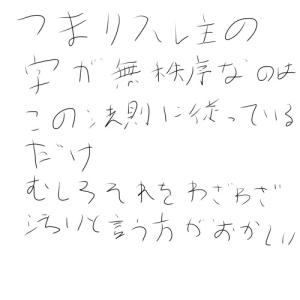 つまりスレ主の
字が無秩序なのは
この法則に従っている
だけ
むしろそれをわざわざ
汚いと言う方がおかしい